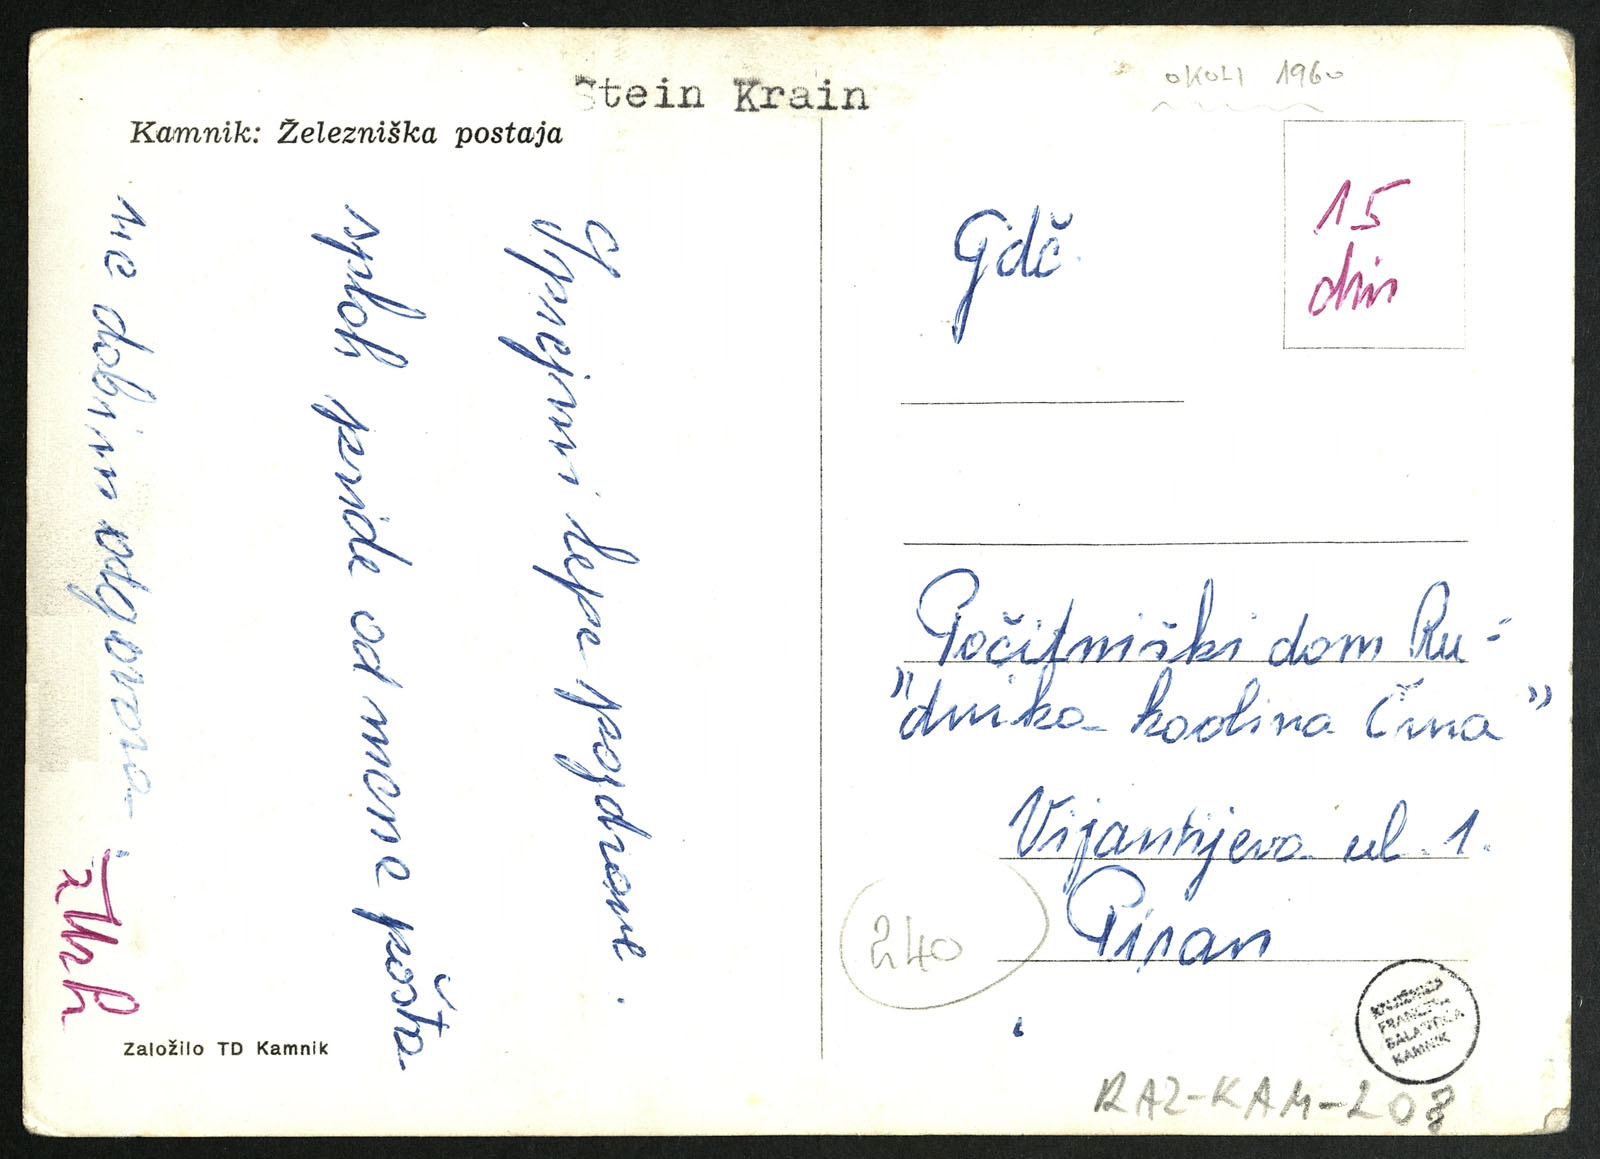 Stein Krain
OKOLI 1960
Kamnik: Železniška postaja
Sprejmi lepe pozdrave.
sploh pride od mene pošta
ne dobim odgovora.
Založilo TD Kamnik
15
din
Gdč.
Počitniški dom Ru-
"dnika kaolina Črna"
Vijantijeva ul. 1.
Piran
240
KNJIŽNICA
FRANCETA
BALANTIČA
KAMNIK
RAZ-KAM-208